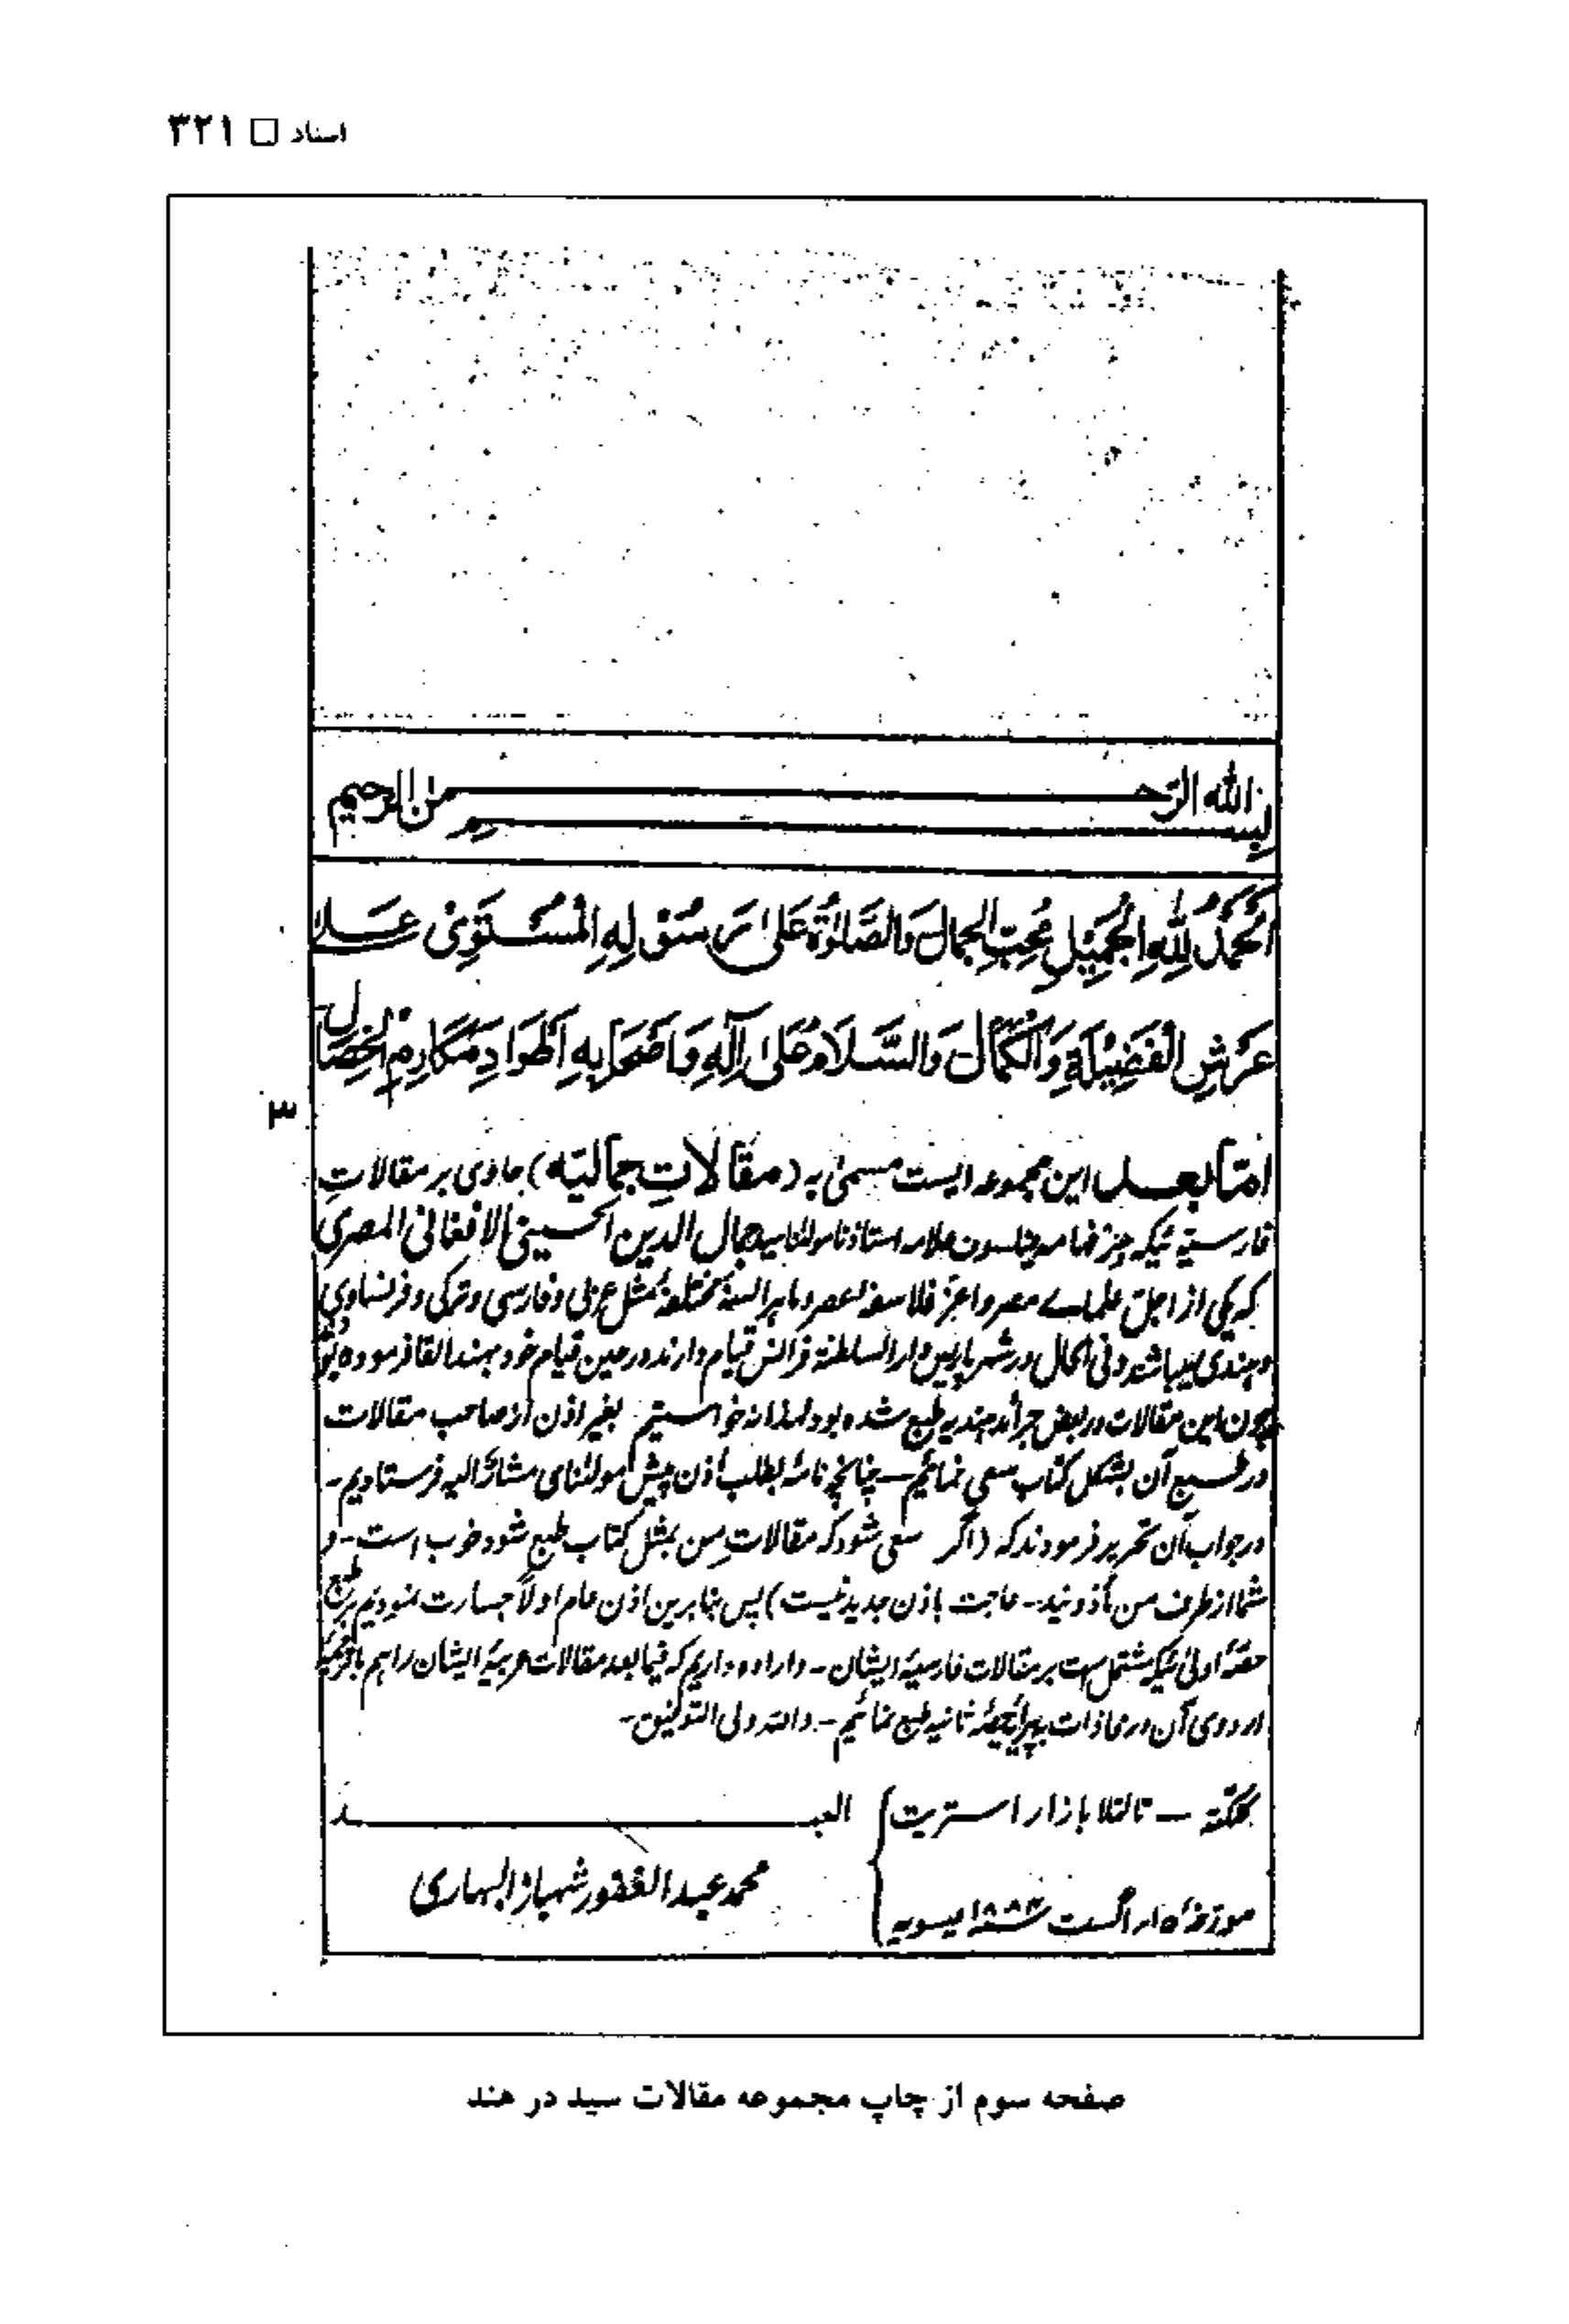 اسناد □ ۳۲۱
بسم الله الرحمن الرحیم
اَلْحَمْدُ لِلّٰهِ الْجَمِیْلِ مُحِبِّ الْجمالِ وَالصَّلوٰةُ عَلیٰ مَنْ لِهِ الْمُسْتَوِیْ عَلا
عَرْشِ الْفَضِیْلَةِ وَالْکَمَالِ وَالسَّلَامُ عَلیٰ آلِهِ وَاَصْحَابِهِ اَطْوَادِ مَکَارِمِ الْخِصَالِ
۳
امّا بعد این مجموعه ایست مسمیٰ به (مقالاتِ جمالیّه) حاوی بر مقالاتِ
فارسیّه که علامه استاذنا مولٰنا سید جمال الدین الحسینی الافغانی المصری
که یکی از اجلّ علماے مصر و اعزّ فلاسفۀ عصر و ماهر السنۀ مختلفه مثل عربی و فارسی و ترکی و فرنساوی
و هندی میباشند و فی الحال در شهر پاریس دار السلطنة فرانس قیام دارند در حین قیام خود بهند القا فرموده بودند
چون این مقالات در بعض جرائد هندیه طبع شده بود لهذا نه خواستیم بغیر اذن از صاحب مقالات
در طبع آن بشکل کتاب سعی نمائیم – چنانچه نامۀ بطلب اذن پیش مولٰنای مشارٌ الیه فرستادیم –
در جواب آن تحریر فرمودند که (اگر سعی شود که مقالاتِ من بمثل کتاب طبع شود خوب است – و
شما از طرف من مأذونید – حاجت باذن جدید نیست) پس بنابرین اذن عام اولاً جسارت نمودیم بر طبع
حصّۀ اولیٰ که مشتمل ست بر مقالات فارسیۀ ایشان – و اراده داریم که فیما بعد مقالات عربیۀ ایشان را هم با ترجمۀ
اردوی آن در محاذات طبع نمائیم – والله ولی التوفیق –
کلکته – تالتلا بازار استریت
العبد
مورخۀ ۱۵ اگست عیسویه
محمد عبد الغفور شهباز البهاری
صفحه سوم از چاپ مجموعه مقالات سید در هند